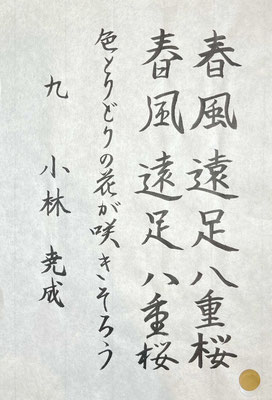 春風遠足八重桜
春風遠足八重桜
色とりどりの花が咲きそろう
九 小林 尭成